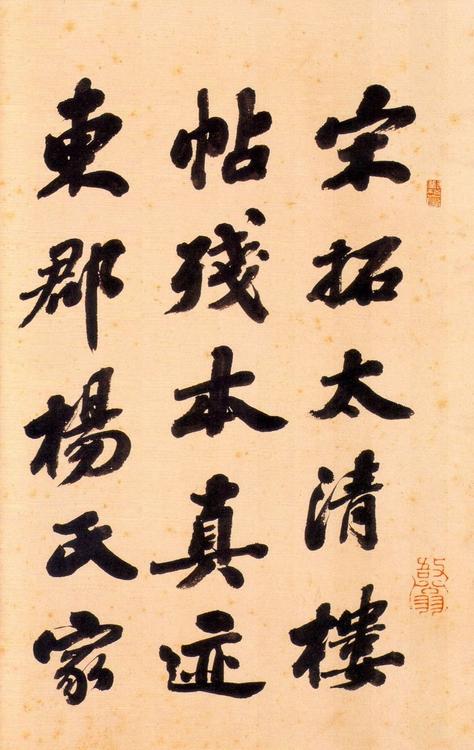 宋拓太清樓
帖殘本真迹
東郡楊氏家